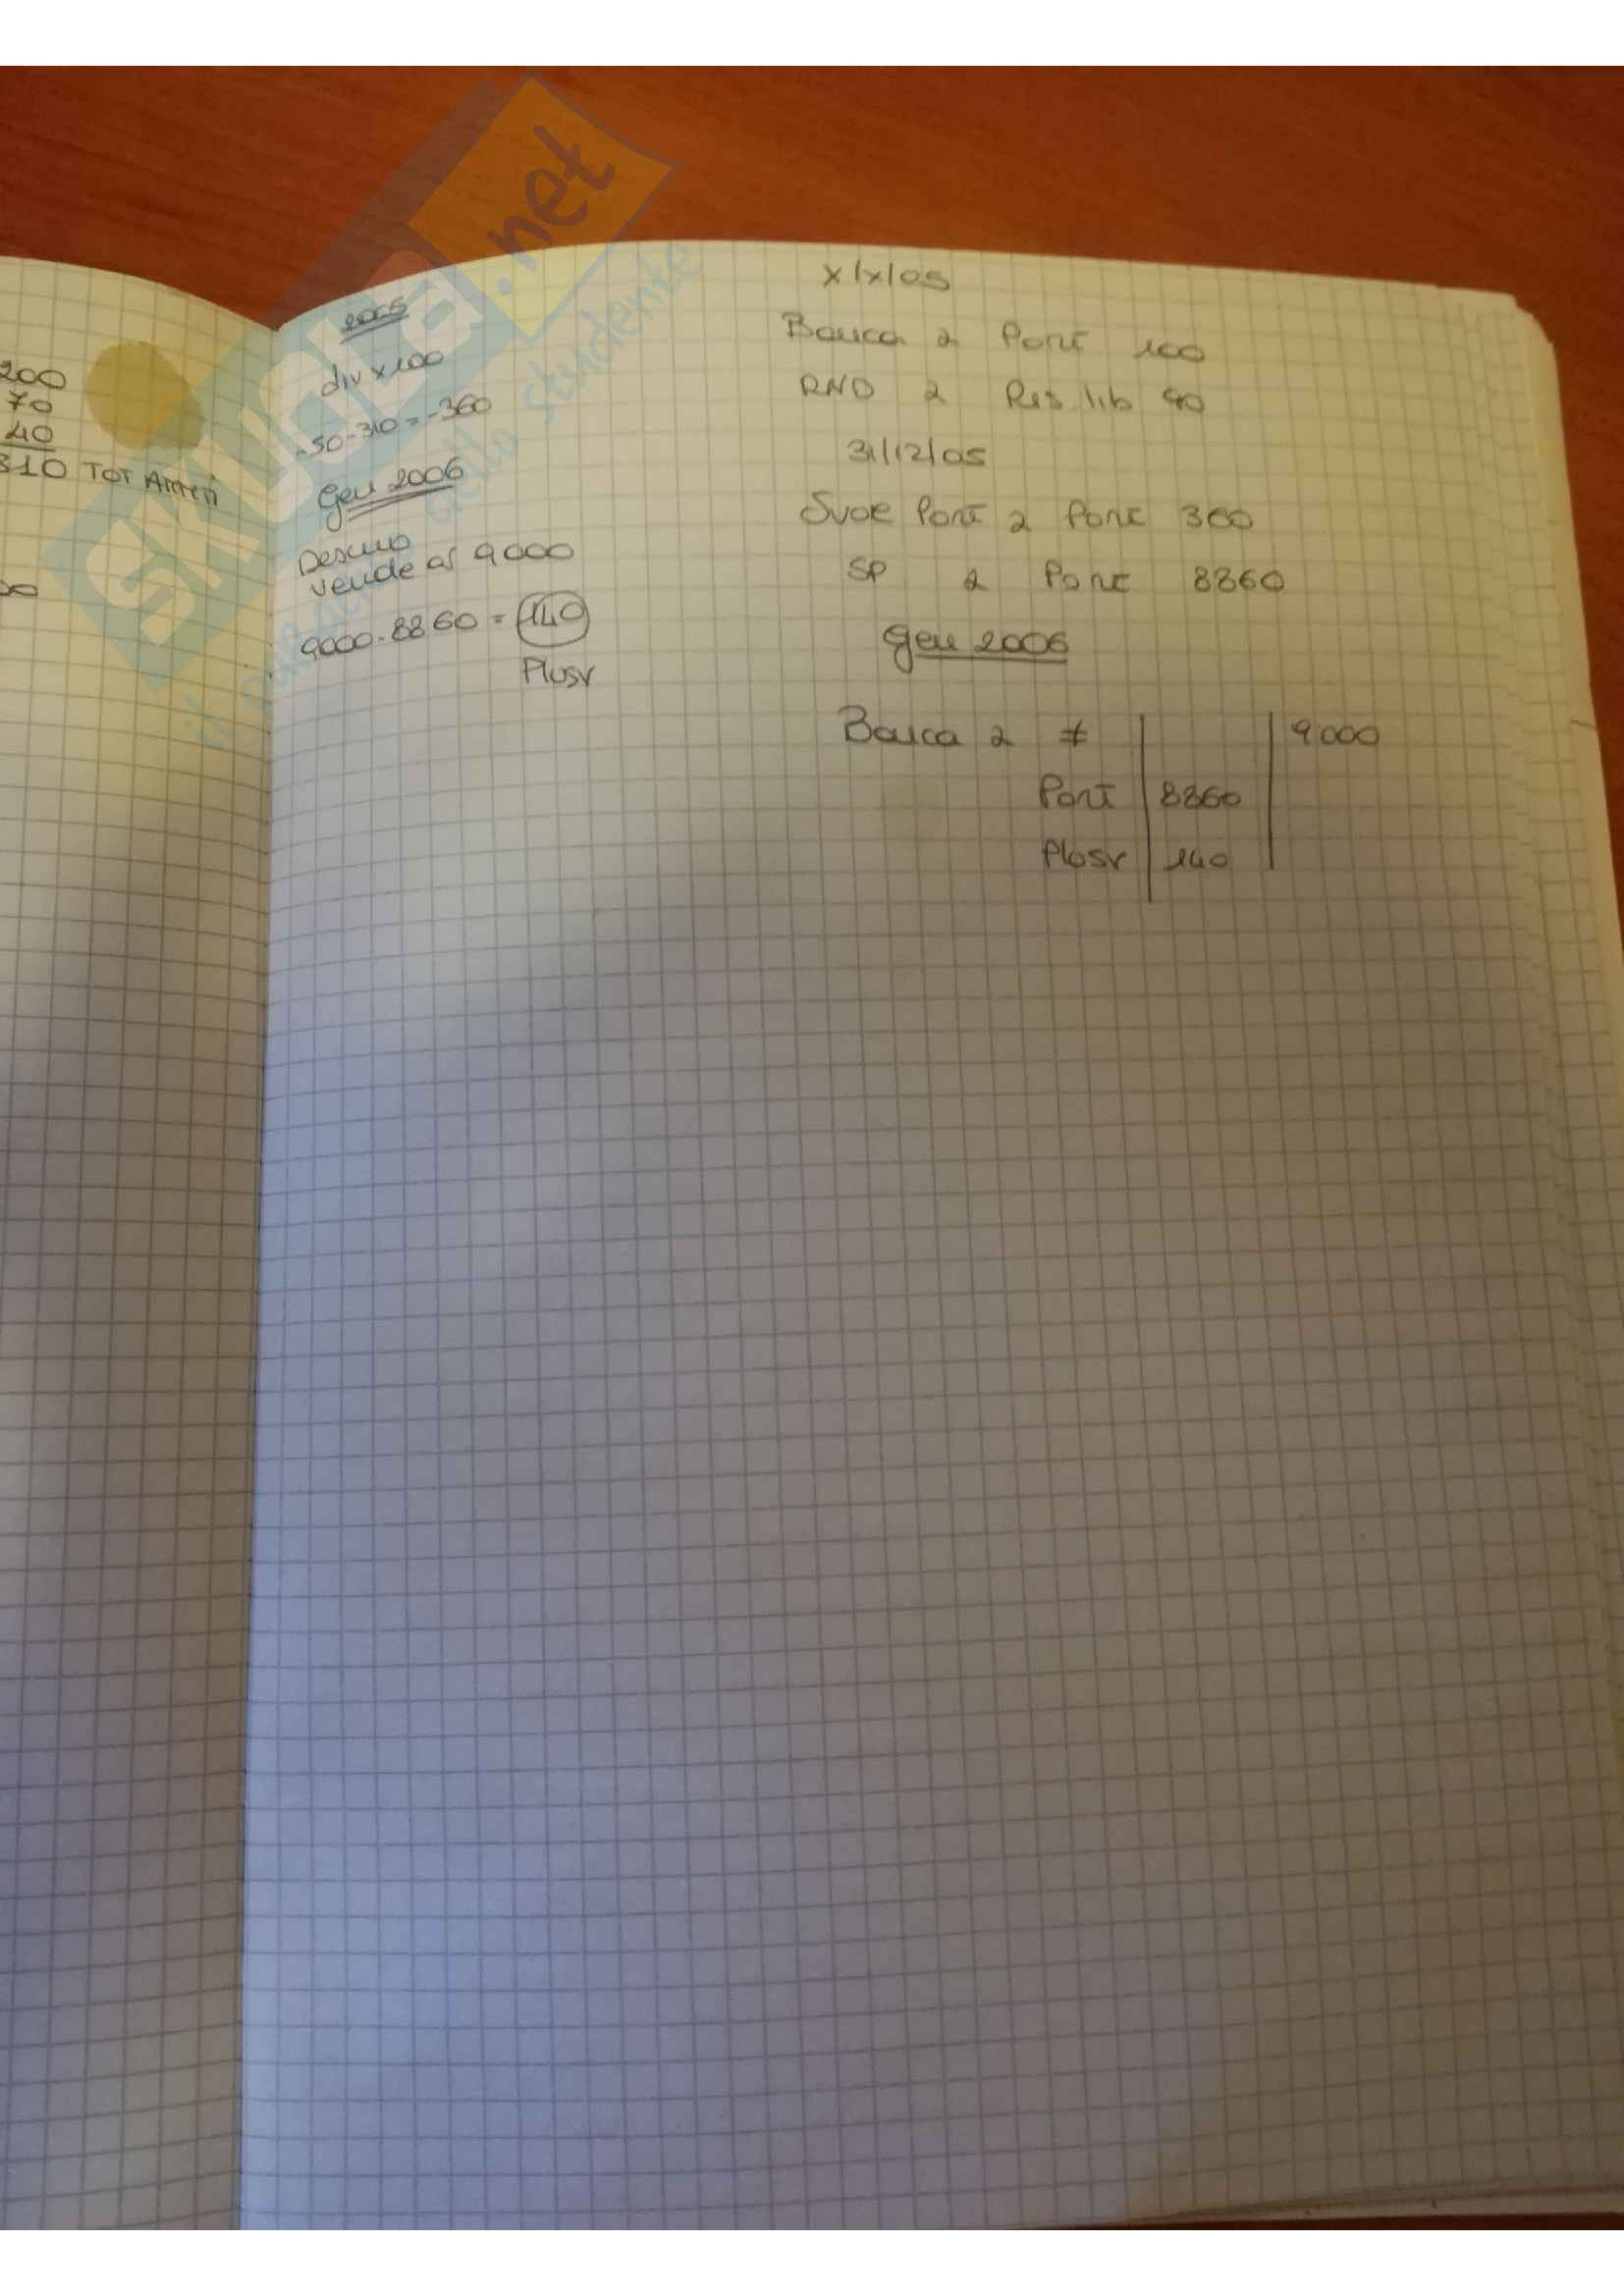 200
70
40
310 TOT Amm
2005
div x 100
-50-310=-360
gen 2006
Desumo
vende a 9000
9000-8860 = 140
Plusv
x/x/05
Banca a Part 100
RND a Res. lib 90
31/12/05
Sval Part a Part 360
SP a Part 8860
gen 2006
Banca a ≠ 9000
Part 8860
Plusv 140
skuola.net
il paradiso dello studente